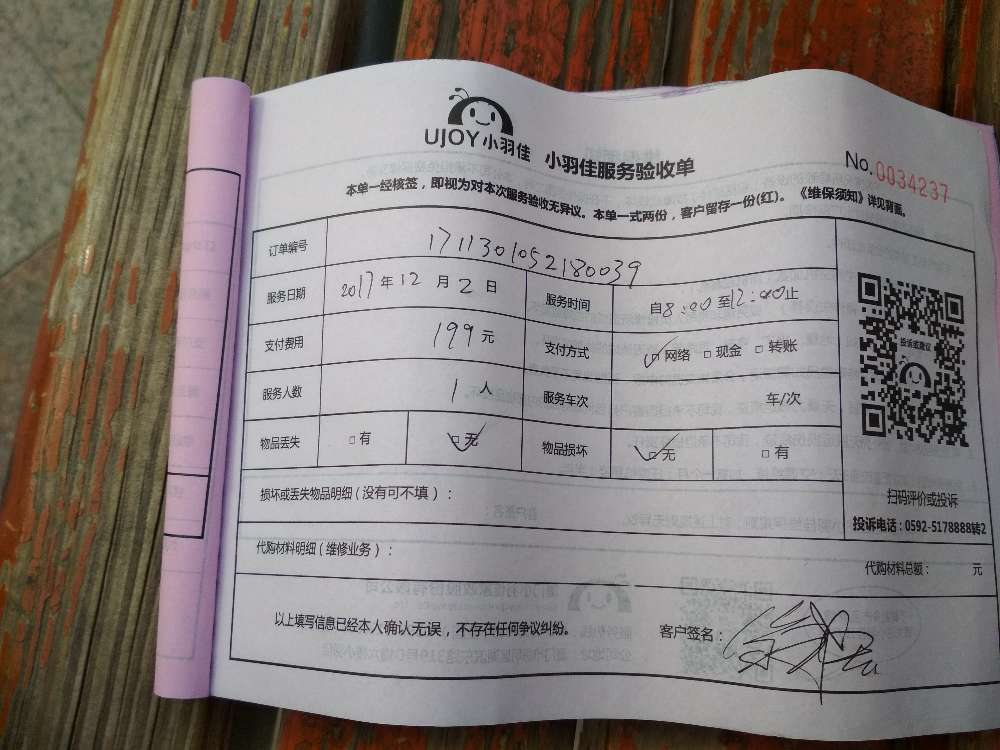 UJOY小羽佳 小羽佳服务验收单 No.0034237
本单一经核签，即视为对本次服务验收无异议。本单一式两份，客户留存一份(红)。《维保须知》详见背面。
订单编号 1711301052180039
服务日期 2017年12月2日 服务时间 自8:00至12:00止
支付费用 199元 支付方式 ☑网络 □现金 □转账
服务人数 1人 服务车次 车/次
物品丢失 □有 ☑无 物品损坏 ☑无 □有
投诉或建议
扫码评价或投诉
投诉电话：0592-5178888转2
损坏或丢失物品明细(没有可不填)：
代购材料明细(维修业务)：
代购材料总额： 元
以上填写信息已经本人确认无误，不存在任何争议纠纷。 客户签名：